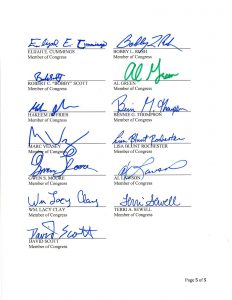 Elijah E. Cummings
Bobby L. Rush
ELIJAH E. CUMMINGS
BOBBY L. RUSH
Member of Congress
Member of Congress
Al Green
ROBERT C. "BOBBY" SCOTT
AL GREEN
Member of Congress
Member of Congress
Bennie G. Thompson
HAKEEM JEFFRIES
BENNIE G. THOMPSON
Member of Congress
Member of Congress
Lisa Blunt Rochester
MARC VEASEY
LISA BLUNT ROCHESTER
Member of Congress
Member of Congress
Gwen Moore
Al Lawson
GWEN S. MOORE
AL LAWSON
Member of Congress
Member of Congress
Wm Lacy Clay
Terri Sewell
WM. LACY CLAY
TERRI A. SEWELL
Member of Congress
Member of Congress
David Scott
DAVID SCOTT
Member of Congress
Page 5 of 5